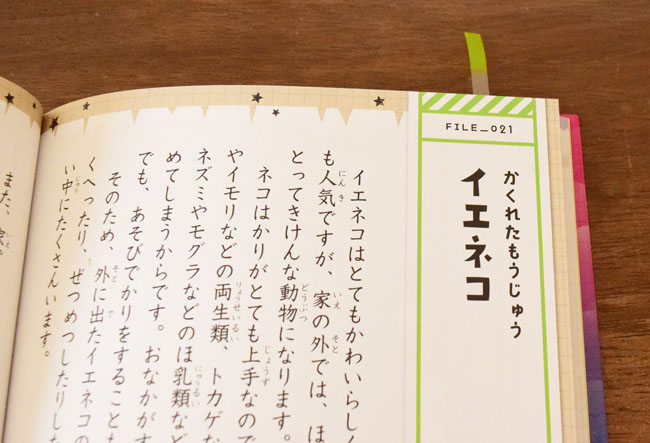 FILE_021
かくれたもうじゅう
イエネコ
イエネコはとてもかわいらしく
も人気ですが、家の外では、ほ
とってきけんな動物になります。
ネコはかりがとても上手なので
やイモリなどの両生類、トカゲな
ネズミやモグラなどのほ乳類など
めてしまうからです。おなかがす
でも、あそびでかりをすることも
そのため、外に出たイエネコの
くへったり、ぜつめつしたりした
い中にたくさんいます。
また、家